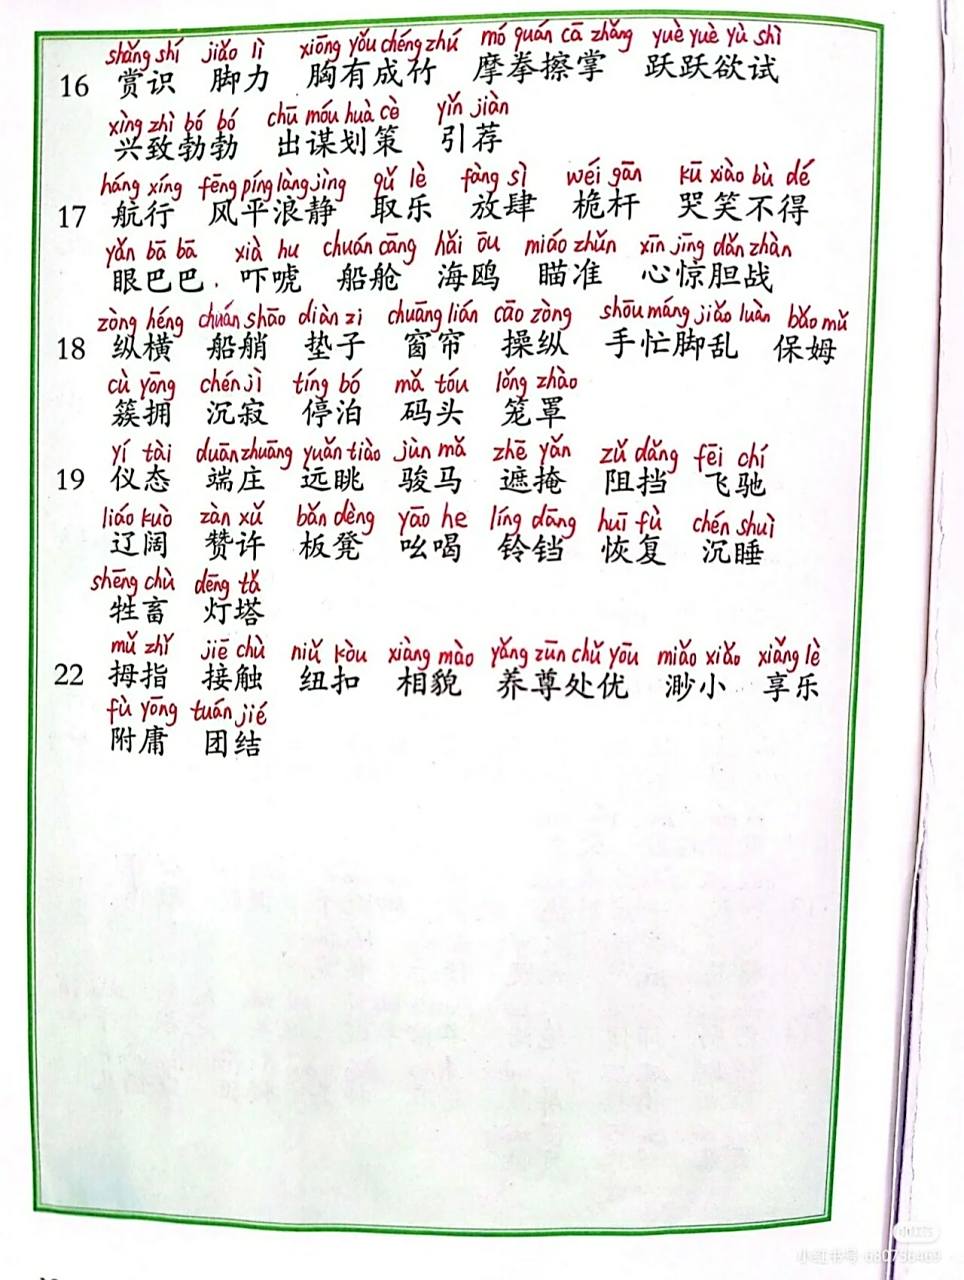 shǎng shí jiǎo lì xiōng yǒu chéng zhú mó quán cā zhǎng yuè yuè yù shì
16 赏识 脚力 胸有成竹 摩拳擦掌 跃跃欲试
xìng zhì bó bó chū móu huà cè yǐn jiàn
兴致勃勃 出谋划策 引荐
háng xíng fēng píng làng jìng qǔ lè fàng sì wéi gān kū xiào bù dé
17 航行 风平浪静 取乐 放肆 桅杆 哭笑不得
yǎn bā bā xià hu chuán cāng hǎi ōu miáo zhǔn xīn jīng dǎn zhàn
眼巴巴 吓唬 船舱 海鸥 瞄准 心惊胆战
zòng héng chuán shāo diàn zi chuāng lián cāo zòng shōu máng jiǎo luàn bǎo mǔ
18 纵横 船艄 垫子 窗帘 操纵 手忙脚乱 保姆
cù yōng chén jì tíng bó mǎ tóu lǒng zhào
簇拥 沉寂 停泊 码头 笼罩
yí tài duān zhuāng yuǎn tiào jùn mǎ zhē yǎn zǔ dǎng fēi chí
19 仪态 端庄 远眺 骏马 遮掩 阻挡 飞驰
liáo kuò zàn xǔ bǎn dèng yāo he líng dāng huī fù chén shuì
辽阔 赞许 板凳 吆喝 铃铛 恢复 沉睡
shēng chù dēng tǎ
牲畜 灯塔
mǔ zhǐ jiē chù niǔ kòu xiàng mào yǎng zūn chǔ yōu miǎo xiǎo xiǎng lè
22 拇指 接触 纽扣 相貌 养尊处优 渺小 享乐
fù yōng tuán jié
附庸 团结
小红书
小红书号 680736469